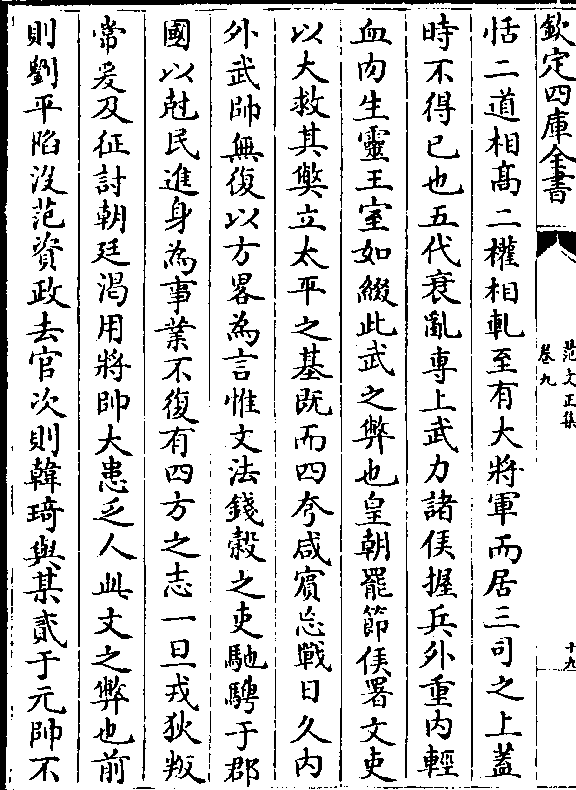 欽定四庫全書
范文正集
卷九
十九
恬二道相髙二權相軋至有大將軍而居三司之上蓋
時不得已也五代衰亂専上武力諸侯握兵外重内輕
血肉生靈王室如綴此武之弊也皇朝罷節侯署文吏
以大救其弊立太平之基既而四夸咸賓忘戰日久内
外武帥無復以方畧為言惟文法錢榖之吏馳騁于郡
國以尅民進身為事業不復有四方之志一旦戎狄叛
常爰及征討朝廷渇用將帥大患乏人此文之弊也前
則劉平陷没范資政去官次則韓琦與某貳于元帥不